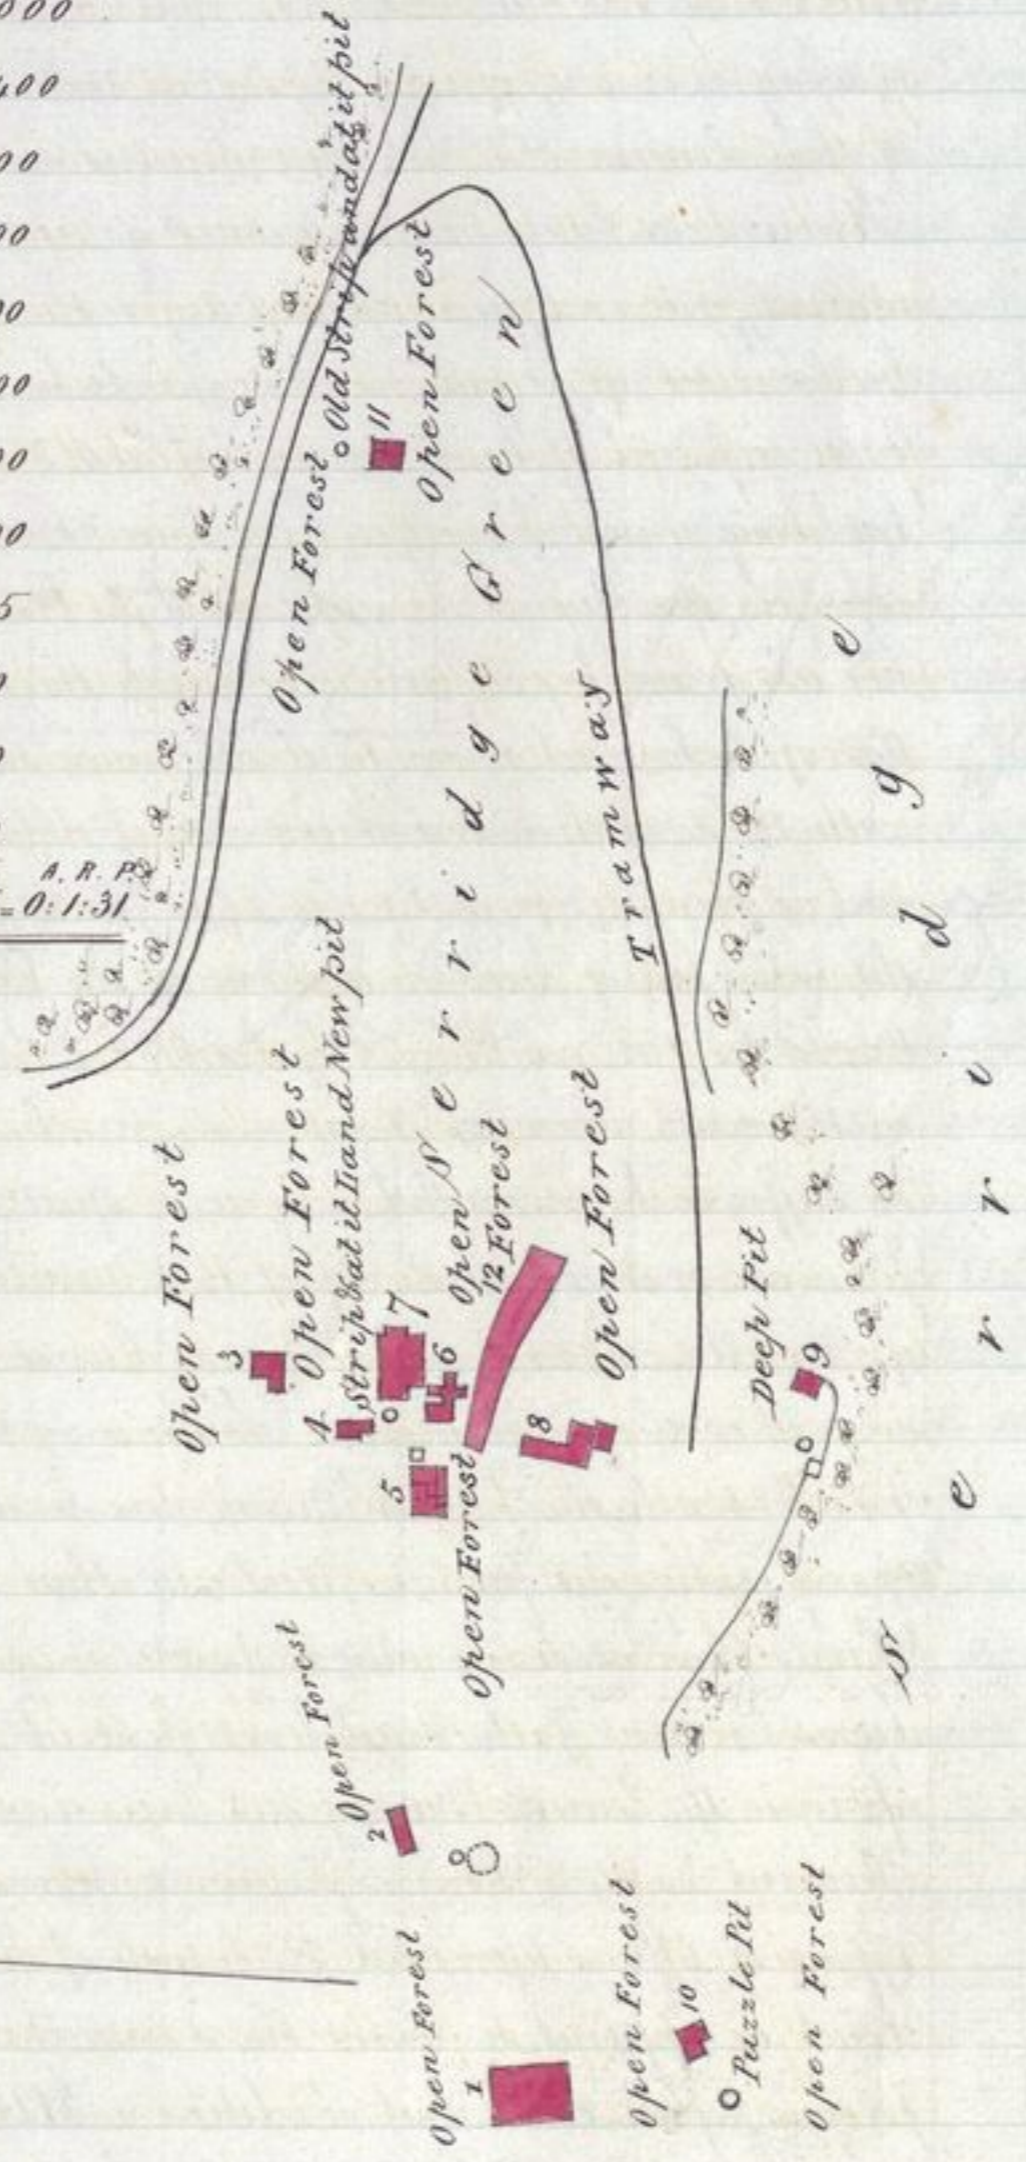 000
400
00
00
00
00
00
00
5
A. R. P.
= 0:1:31
Old Strip and at it pit
Open Forest
Open Forest
11
Nerridge Green
Tramway
Open Forest
3
Open Forest
Strip & at it Land New pit
4
7
5
6
Open
12 Forest
Open Forest
8
Open Forest
Deep Pit
9
Serridge
Open Forest
2
Open Forest
1
Open Forest
10
Puzzle Pit
Open Forest